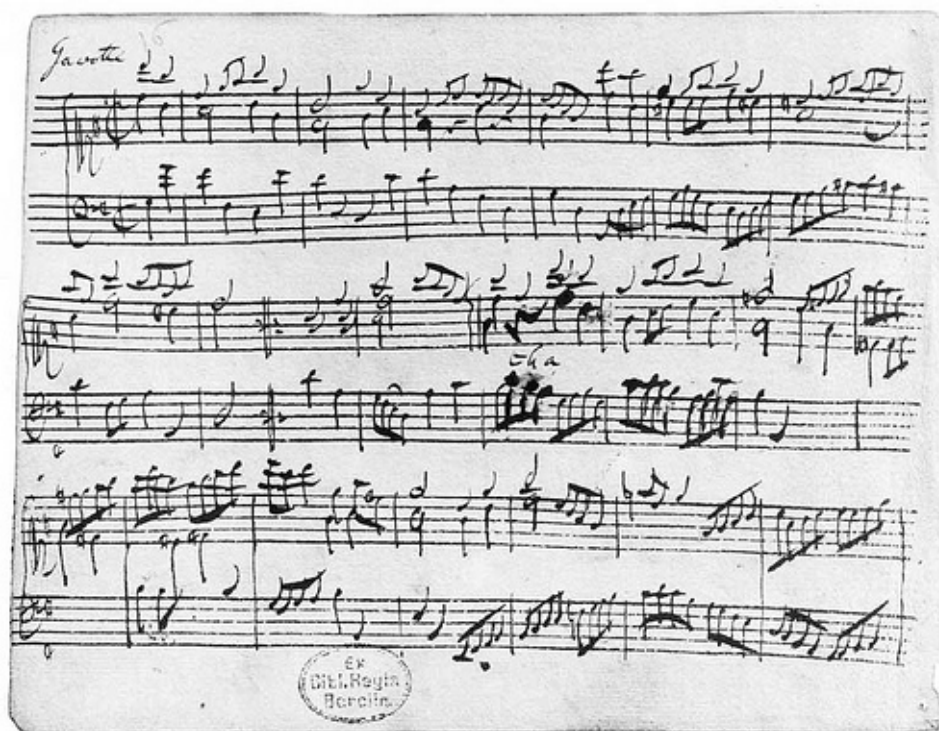 Gavotte
c h a
Ex
Bibl. Regia
Berolin.